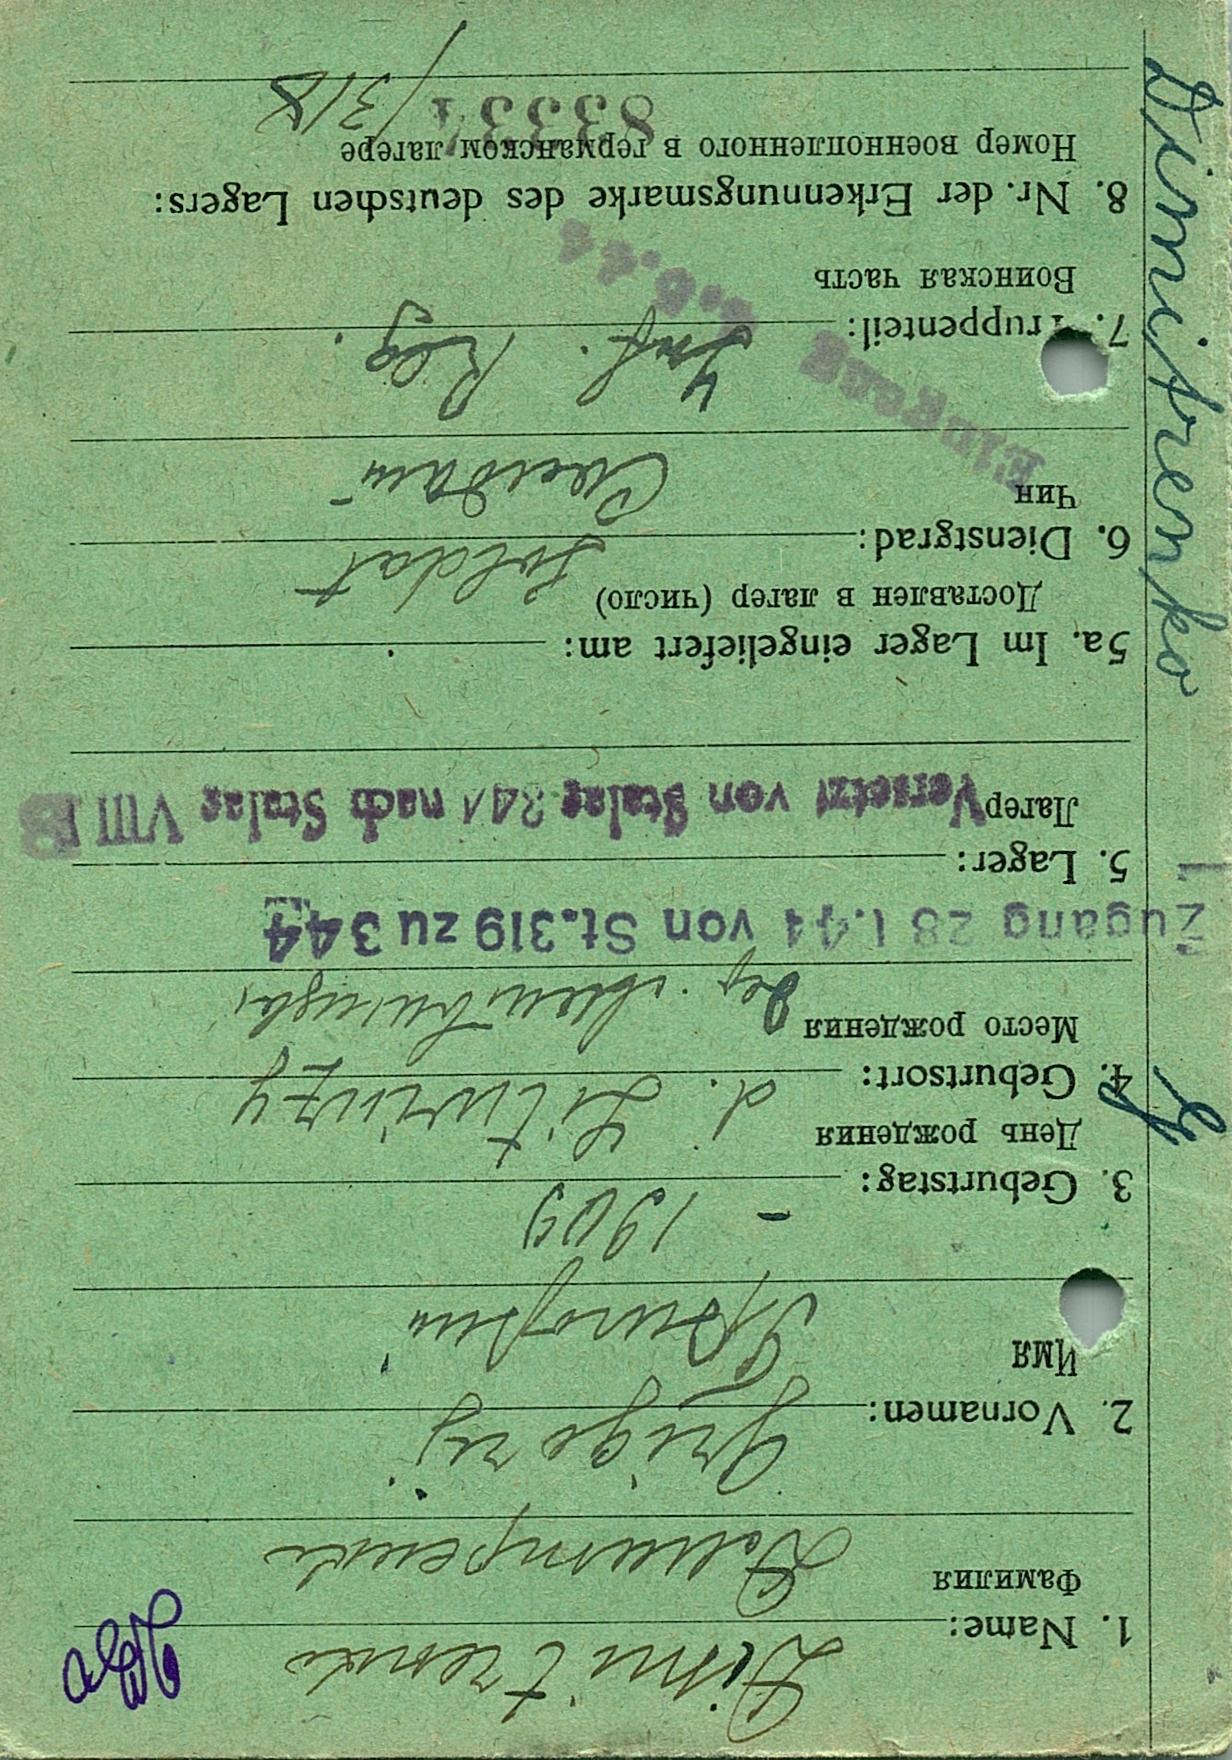 Dimitrenko
1. Name: Dimitrenko
Фамилия Димитренко
2. Vornamen: Grigorij
Имя
3. Geburtstag: – 1909
День рождения
4. Geburtsort: d. Litwinzy
Место рождения Дер.
Zugang 28 1.44 von St.319 zu 344
5. Lager:
Лагер Versetzt von Stalag 344 nach Stalag VIII B
5a. Im Lager eingeliefert am:
Доставлен в лагер (число)
6. Dienstgrad: Soldat
Чин Солдат
Eingang
7. Truppenteil: Inf. Reg.
Воинская часть
8. Nr. der Erkennungsmarke des deutschen Lagers:
Номер военнопленного в германском лагере
83334 /318